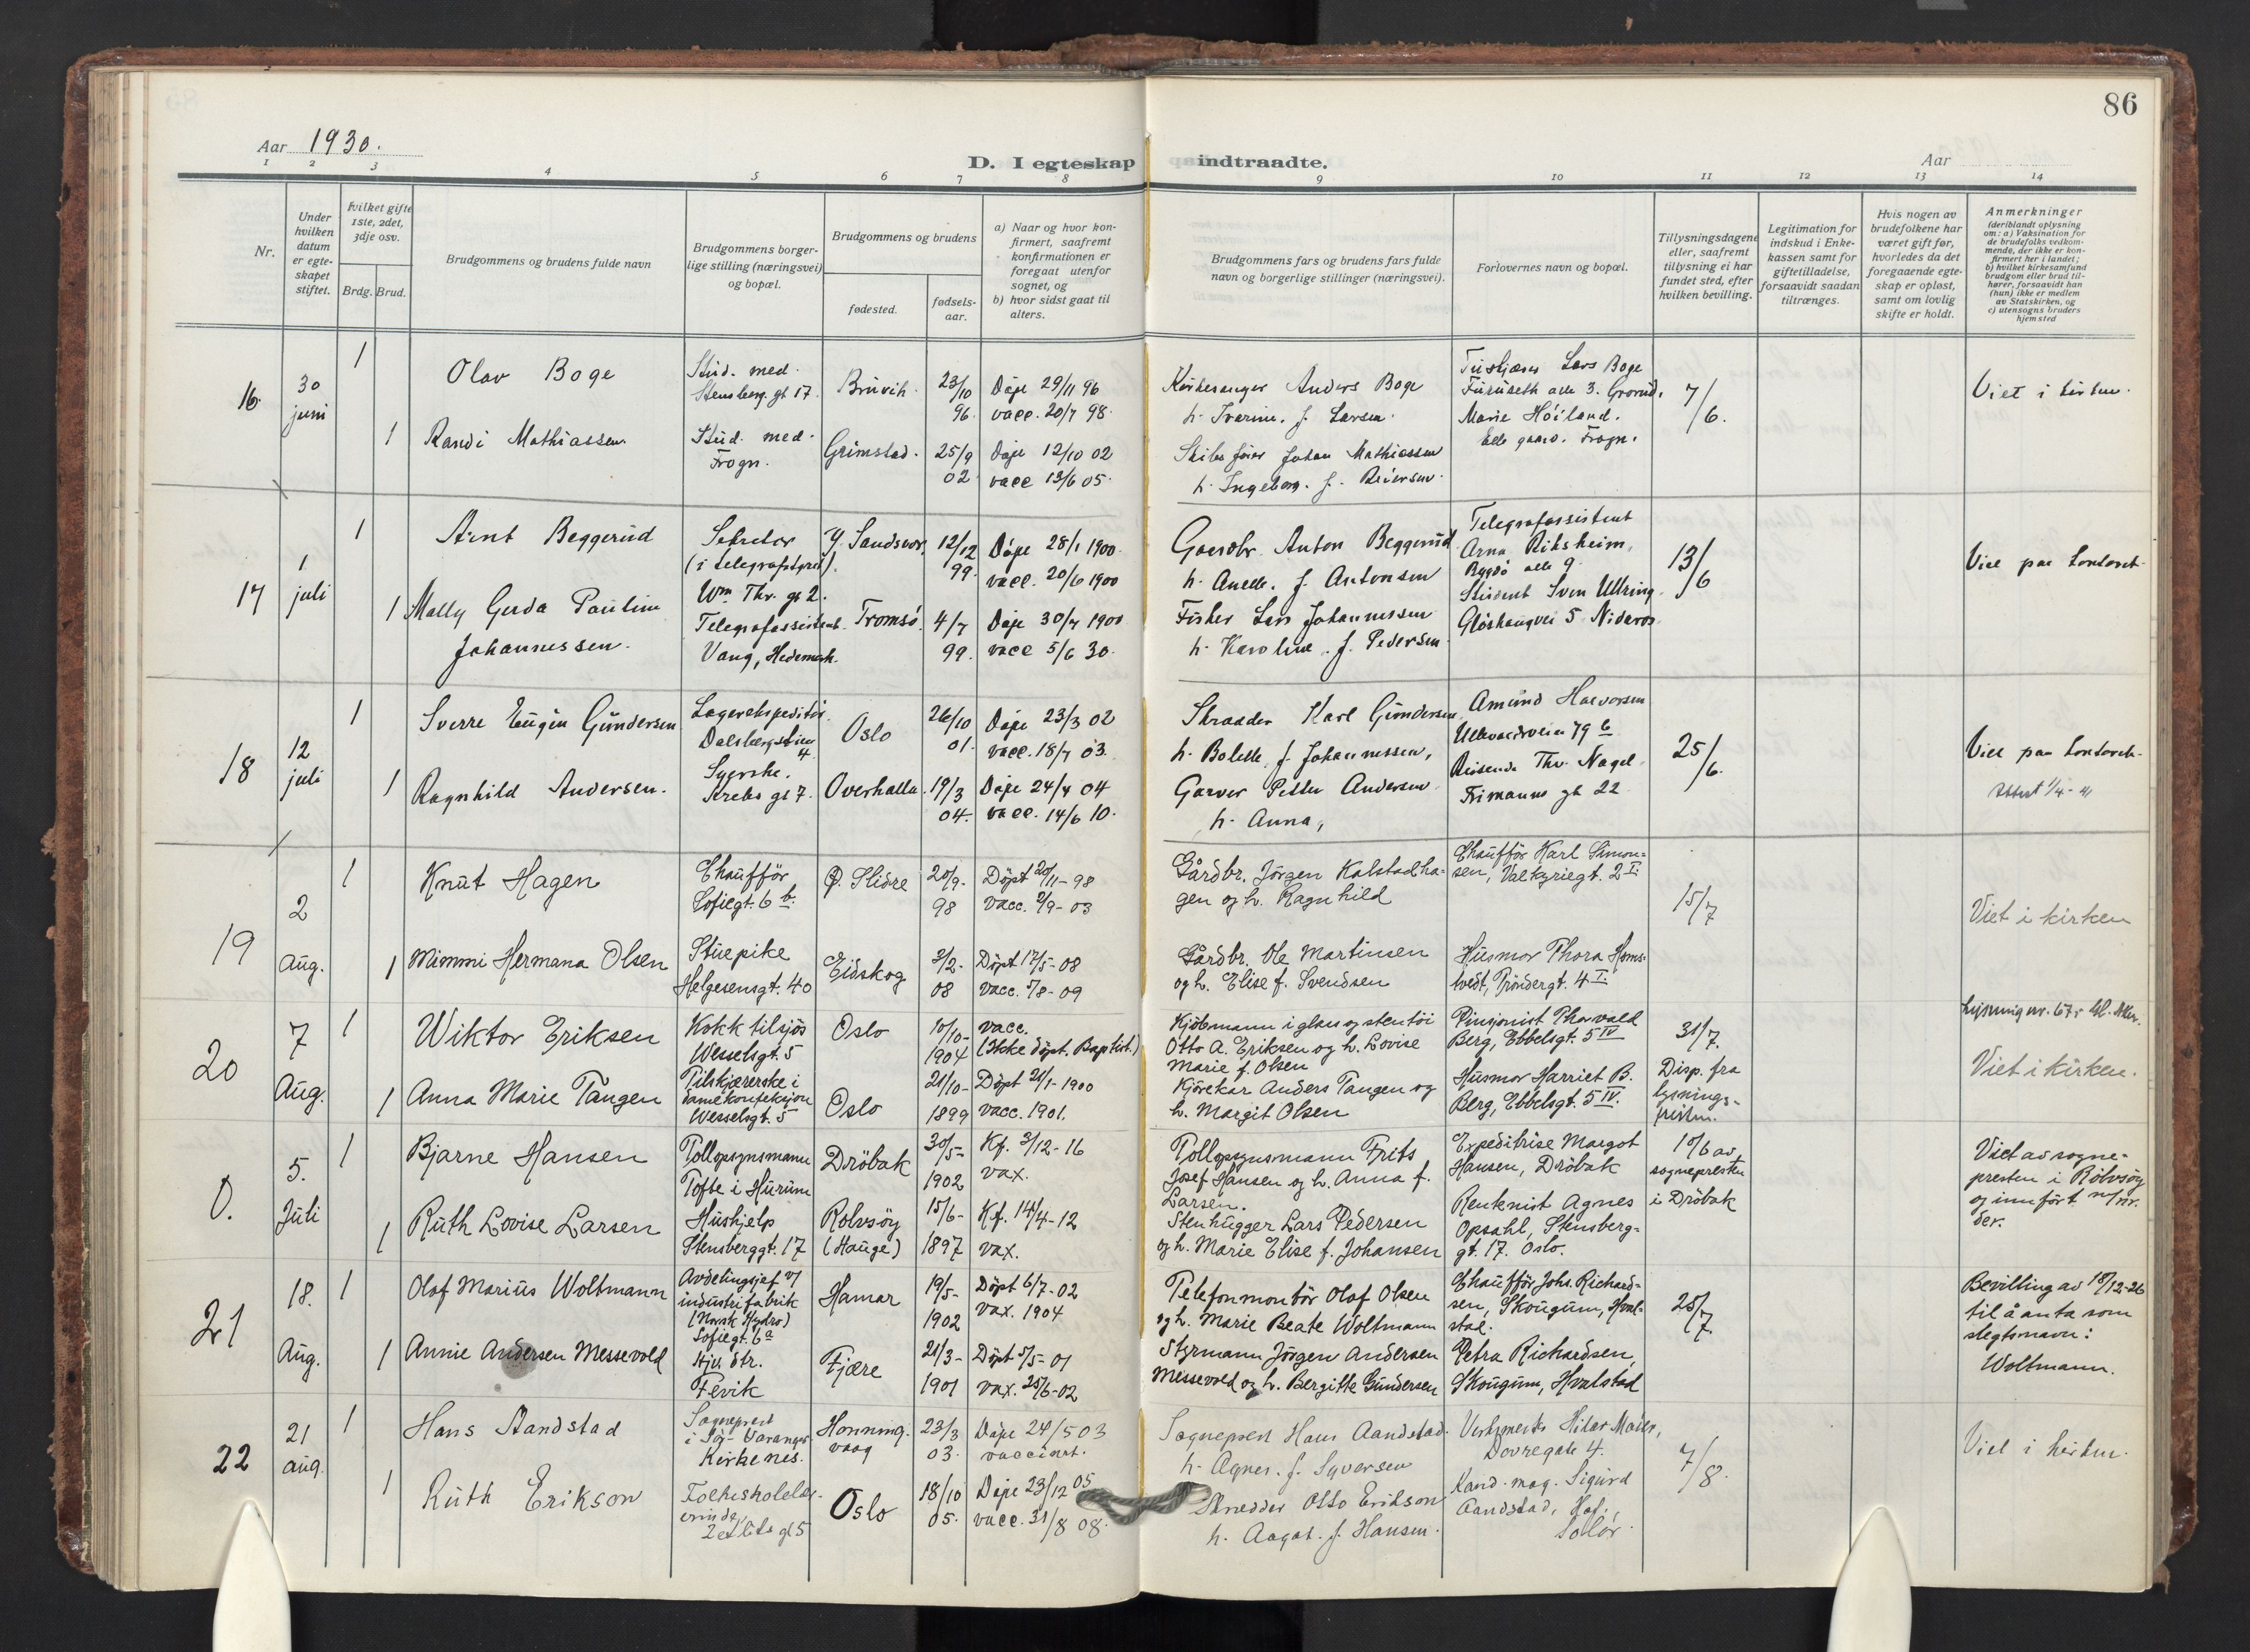 86
Aar 1930.
D. I egteskap indtraadte.
Aar
1 2 3 4 5 6 7 8 9 10 11 12 13 14
Nr.
Under hvilken datum er egteskapet stiftet.
Hvilket gifte 1ste, 2det, 3dje osv.
Brdg. Brud.
Brudgommens og brudens fulde navn
Brudgommens borgerlige stilling (næringsvei) og bopæl.
Brudgommens og brudens
fødested.
fødselsaar.
a) Naar og hvor konfirmert, saafremt konfirmationen er foregaat utenfor sognet, og
b) hvor sidst gaat til alters.
Brudgommens fars og brudens fars fulde navn og borgerlige stillinger (næringsvei).
Forlovernes navn og bopæl.
Tillysningsdagene eller, saafremt tillysning ei har fundet sted, efter hvilken bevilling.
Legitimation for indskud i Enkekassen samt for giftetilladelse, forsaavidt saadan tiltrænges.
Hvis nogen av brudefolkene har været gift før, hvorledes da det foregaaende egteskap er opløst, samt om lovlig skifte er holdt.
Anmerkninger
(deriblandt oplysning om: a) Vaksination for de brudefolks vedkommende, der ikke er konfirmert her i landet; b) hvilket kirkesamfund brudgom eller brud tilhører, forsaavidt han (hun) ikke er medlem av Statskirken, og c) utensogns bruders hjemsted
16. 30 juni
1 Olav Boge
Stud. med. Stensberg. gt 17.
Bruvik. 23/10 96.
Døpt 29/11 96 vacc. 20/7 98.
Kirkesanger Anders Boge
h. Ivarine. f. Larsen.
Lars Boge
Furuseth alle 3. Grorud.
7/6.
Viet i kirken.
1 Randi Mathiassen.
Stud. med. Frogn.
Grimstad. 25/9 02.
Døpt 12/10 02 vacc 13/6 05.
Skibsfører Johan Mathiassen
h. Ingeborg. f.
Marie Höiland.
gaard. Frogn.
17 1 juli
1 Arnt Beggerud
Sekretær
(i telegrafstyret).
Wm Thr. gt 2.
Y. Sandsvær 12/12 99.
Døpt 28/1 1900. vacc. 20/6 1900
Gaardbr. Anton Beggerud
h. Anette. f. Antonsen
Telegrafassistent
Arna Riksheim.
Bygdö alle 9.
13/6
Viet paa kontoret.
1 Mally Gerda Pauline
Johannessen.
Telegrafassistent.
Vang, Hedemark.
Tromsö. 4/7 99.
Døpt 30/7 1900 vacc 5/6 30.
Fisker Lars Johannessen
h. Karoline. f. Pedersen.
Student Sven Ullring.
Glöshaugvei 5. Nidaros.
18 12 juli
1 Sverre Eugen Gundersen
Lagerekspeditör.
Dalsbergstien 4.
Oslo 26/10 01.
Døpt 23/3 02 vacc. 18/7 03.
Skrædder Karl Gundersen
h. Bolette. f. Johannessen,
Amund Halvorsen
Ullevaalsveien 79 b
25/6.
Viet paa kontoret.
Attest 1/4-41
1 Ragnhild Andersen.
Syerske.
Krebs gt 7.
Overhalla. 19/3 04.
Døpt 24/4 04 vacc. 14/6 10.
Garver Petter Andersen.
h. Anna,
Reisende Thv. Nagel.
Frimanns gt 22
19 2 Aug.
1 Knut Hagen
Chaufför
Sofiegt. 6 b.
Ø. Slidre 20/9- 98
Döpt 20/11-98
vacc. 2/9-03
Gårdbr. Jörgen Kalstadha-
gen og h. Ragnhild
Chaufför Karl Simon-
sen, Valkyriegt. 2 I.
15/7
Viet i kirken
1 Mimmi Hermana Olsen
Stuepike
Helgesensgt. 40
Eidskog 3/2- 08
Döpt 17/5-08
vacc. 7/8-09
Gårdbr. Ole Martinsen
og h. Elise f. Svendsen
Husmor Thora Homs-
tvedt, Tröndergt. 4 I.
20 7 Aug.
1 Wiktor Eriksen
Kokk tilsjös
Wesselsgt. 5
Oslo 10/10- 1904
vacc.
(Ikke döpt. Baptist.)
Kjöbmann i glass og stentöi
Otto A. Eriksen og h. Lovise
Marie f. Olsen
Pensjonist Thorvald
Berg, Ebbelsgt. 5 IV
31/7.
Disp. fra
lysnings-
fristen.
Lysning nr. 67
Viet i kirken.
1 Anna Marie Tangen
Tilskjærerske i
damekonfeksjon
Wesselsgt. 5
Oslo 21/10- 1899
Döpt 21/1-1900
vacc. 1901.
Kjörekar Anders Tangen og
h. Margit Olsen
Husmor Harriet B.
Berg, Ebbelsgt. 5 IV.
0. 5. Juli
1 Bjarne Hansen
Tollopsynsmann
Tofte i Hurum
Dröbak 30/5- 1902
Kf. 3/12-16
vax.
Tollopsynsmann Frits
Josef Hansen og h. Anna f.
Larsen.
Expeditrise Margot
Hansen, Dröbak
10/6 av
sognepresten
i Dröbak
Viet av sogne-
presten i Rolvsöy
og innfört nr.
der.
1 Ruth Lovise Larsen
Hushjelp
Stensberggt. 17
Rolvsöy
(Hauge) 15/6- 1897
Kf. 14/4-12
vax.
Stenhugger Lars Pedersen
og h. Marie Elise f. Johansen
Rentenist Agnes
Opsahl, Stensberg-
gt. 17. Oslo.
21 18. Aug.
1 Olaf Marius Woltmann
Avdelingsjef v/
industrifabrik
(Norsk Hydro)
Sofiegt. 6 a
Hamar 19/5- 1902
Döpt 6/7-02
vax. 1904
Telefonmontör Olaf Olsen
og h. Marie Beate Woltmann
Chaufför Johs. Richard-
sen, Skougum, Hval-
stad.
25/7
Bevilling av 18/12-26
til å anta som
slegtsnavn:
Woltmann.
1 Annie Andersen Messevold
Hjv. str.
Fevik
Fjære 21/3- 1901
Döpt 5/5-01
vax. 25/6-02
Styrmann Jörgen Andersen
Messevold og h. Bergitte Gundersen
Petra Richardsen,
Skougum, Hvalstad
22 21 aug.
1 Hans Aandstad
Sogneprest
i Sör-Varanger
Kirkenes.
Honning-
vaag 23/3 03.
Døpt 24/5 03
vaccinert.
Sogneprest Hans Aandstad.
h. Agnes. f. Syversen
Hilar Maier,
Dovregate 4.
7/8.
Viet i kirken.
1 Ruth Erikson
Oslo 18/10 05.
Døpt 23/12 05
vacc. 31/8 08.
Skredder Otto Erikson
h. Aagot. f. Hansen.
Kand. mag. Sigurd
Aandstad, Hof,
Solör.